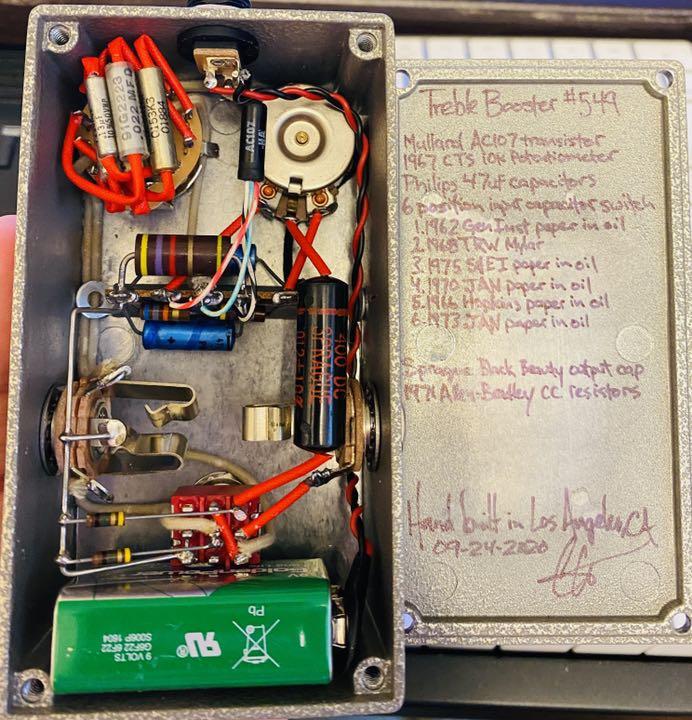 Treble Booster #549
Mullard AC107 transistor
1967 CTS 10k Potentiometer
Philips 47uf capacitors
6 position input capacitor switch
1. 1962 Gen Inst paper in oil
2. 1968 TRW Mylar
3. 1975 SEI paper in oil
4. 1970 JAN paper in oil
5. 1966 Hopkins paper in oil
6. 1973 JAN paper in oil
Sprague Black Beauty output cap
1971 Allen-Bradley CC resistors
Hand built in Los Angeles, CA
09-24-2020
61G2223
.022 MFD
AC107
400 DC
SPRAGUE
Pb
9 VOLTS
6F22
S006P 1604